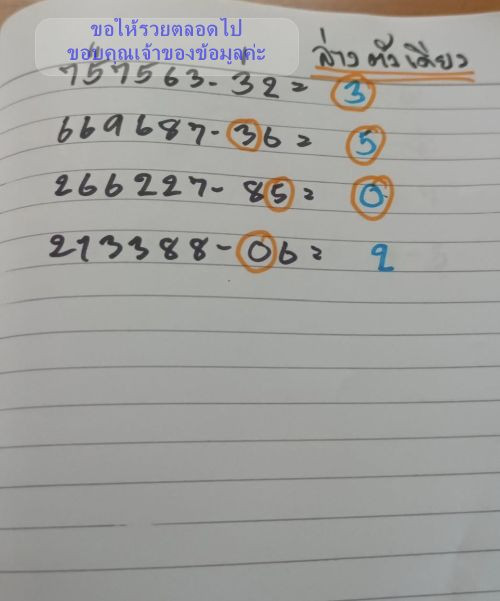 ขอให้รวยตลอดไป
ขอบคุณเจ้าของข้อมูลค่ะ
ล่างตัวเดียว
757563-32= 3
669687-36= 5
266227-85= 0
213388-06= 2